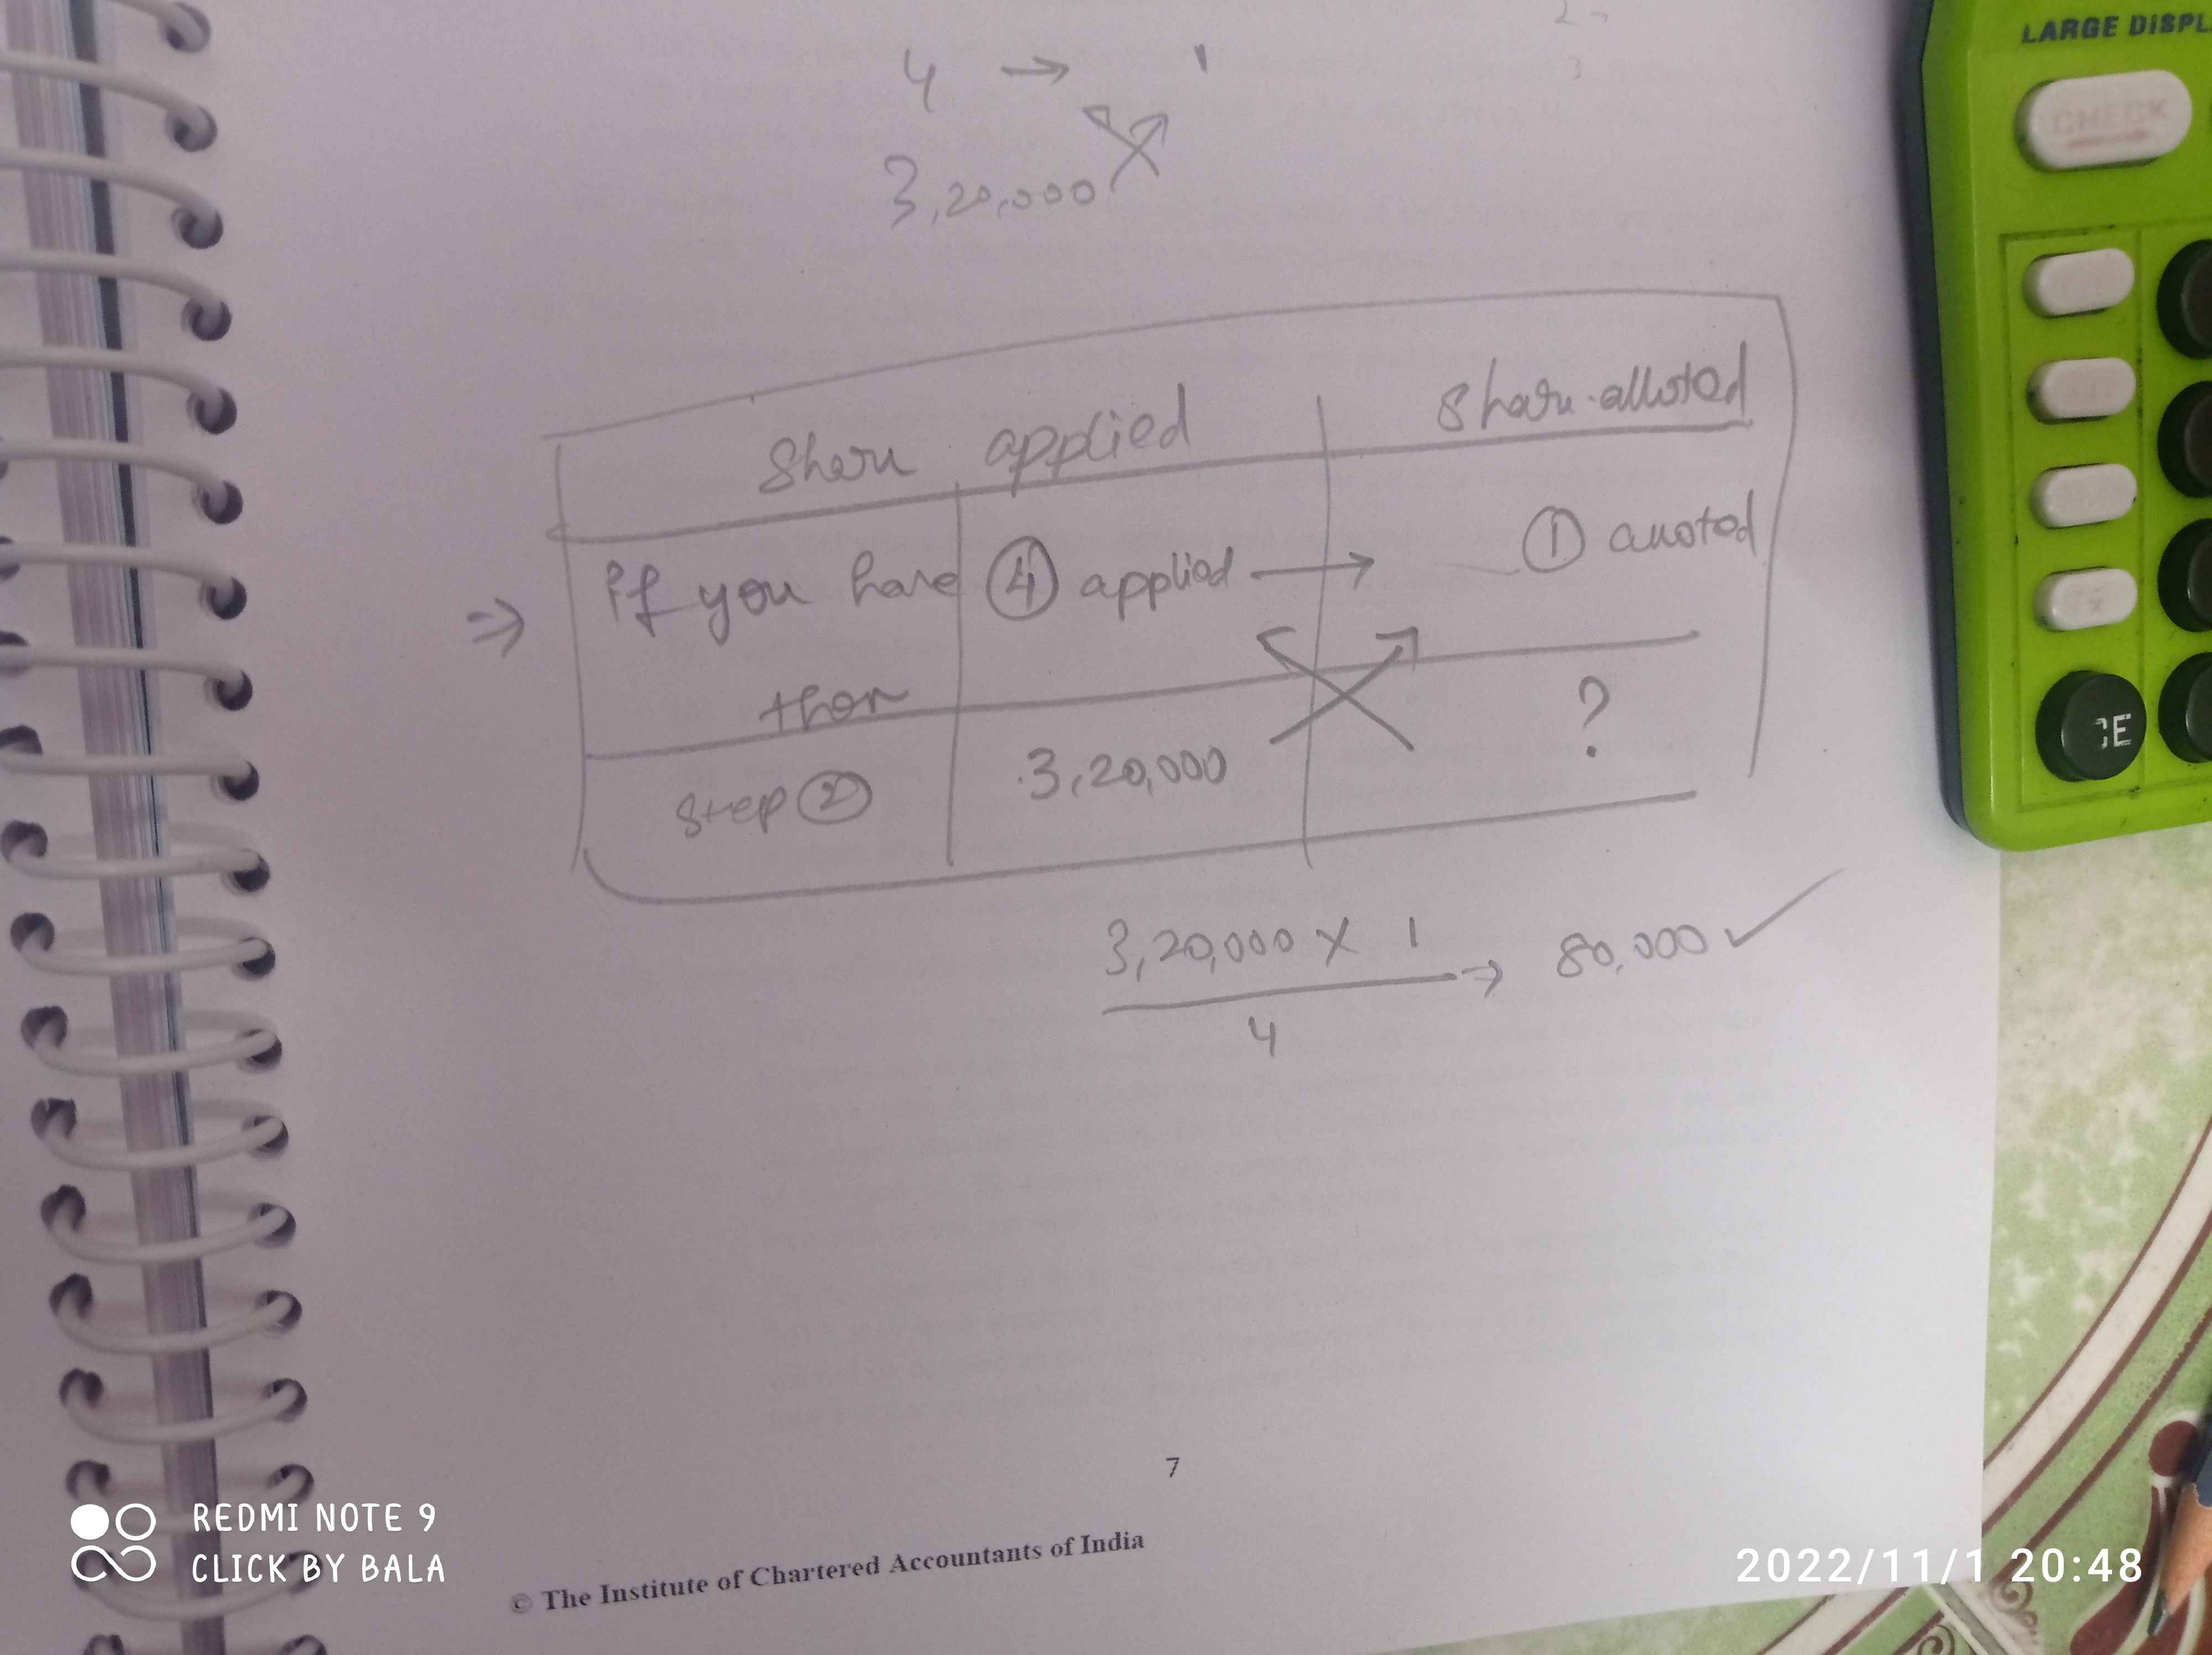 LARGE DISPL
4 → 1
3
CHECK
3,20,000
Share applied
Share alloted
If you have ④ applied → ① alloted
then
Step ② 3,20,000 ?
CE
3,20,000 X 1
⇒ 80,000 ✓
4
7
© The Institute of Chartered Accountants of India
REDMI NOTE 9
CLICK BY BALA
2022/11/1 20:48